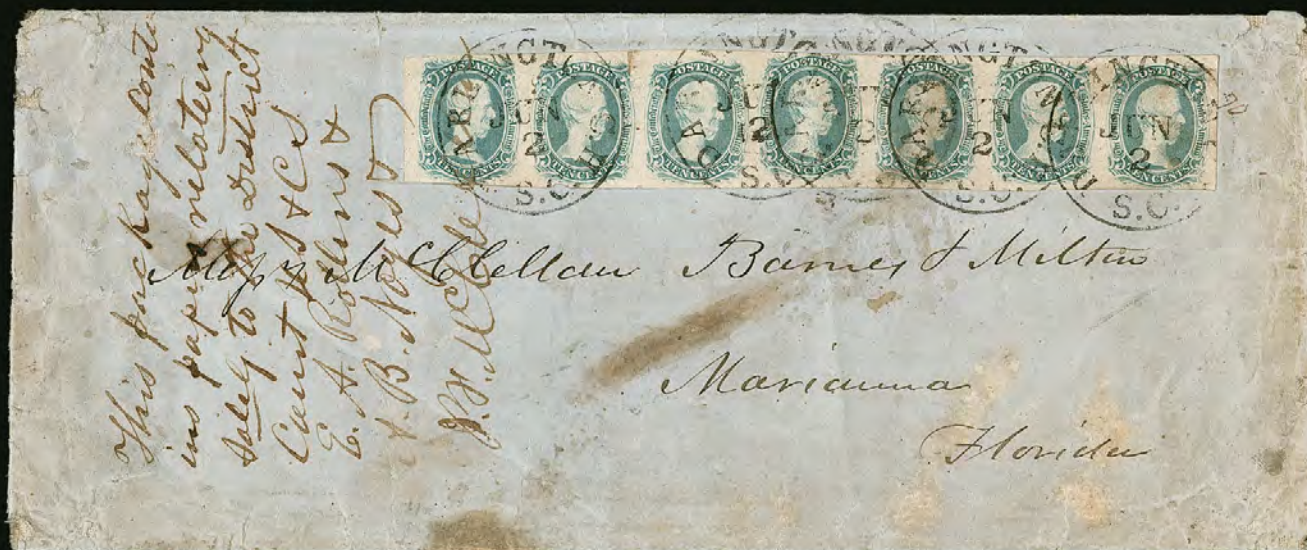 This package conta
ins papers relateing
solely to the District
Court &
E. A. Rollins &
A. B. Noyes
DARLINGTON
JUN
2
S.C.
POSTAGE
TEN CENTS
Mess McClellan Barnes & Milton
Marianna
Florida